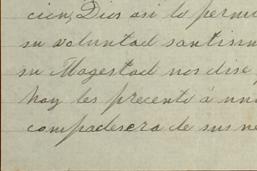 cion, Dios asi lo permi
su voluntad santisim
su Magestad nos dise
hoy les precento á un
compadesera de sus ne